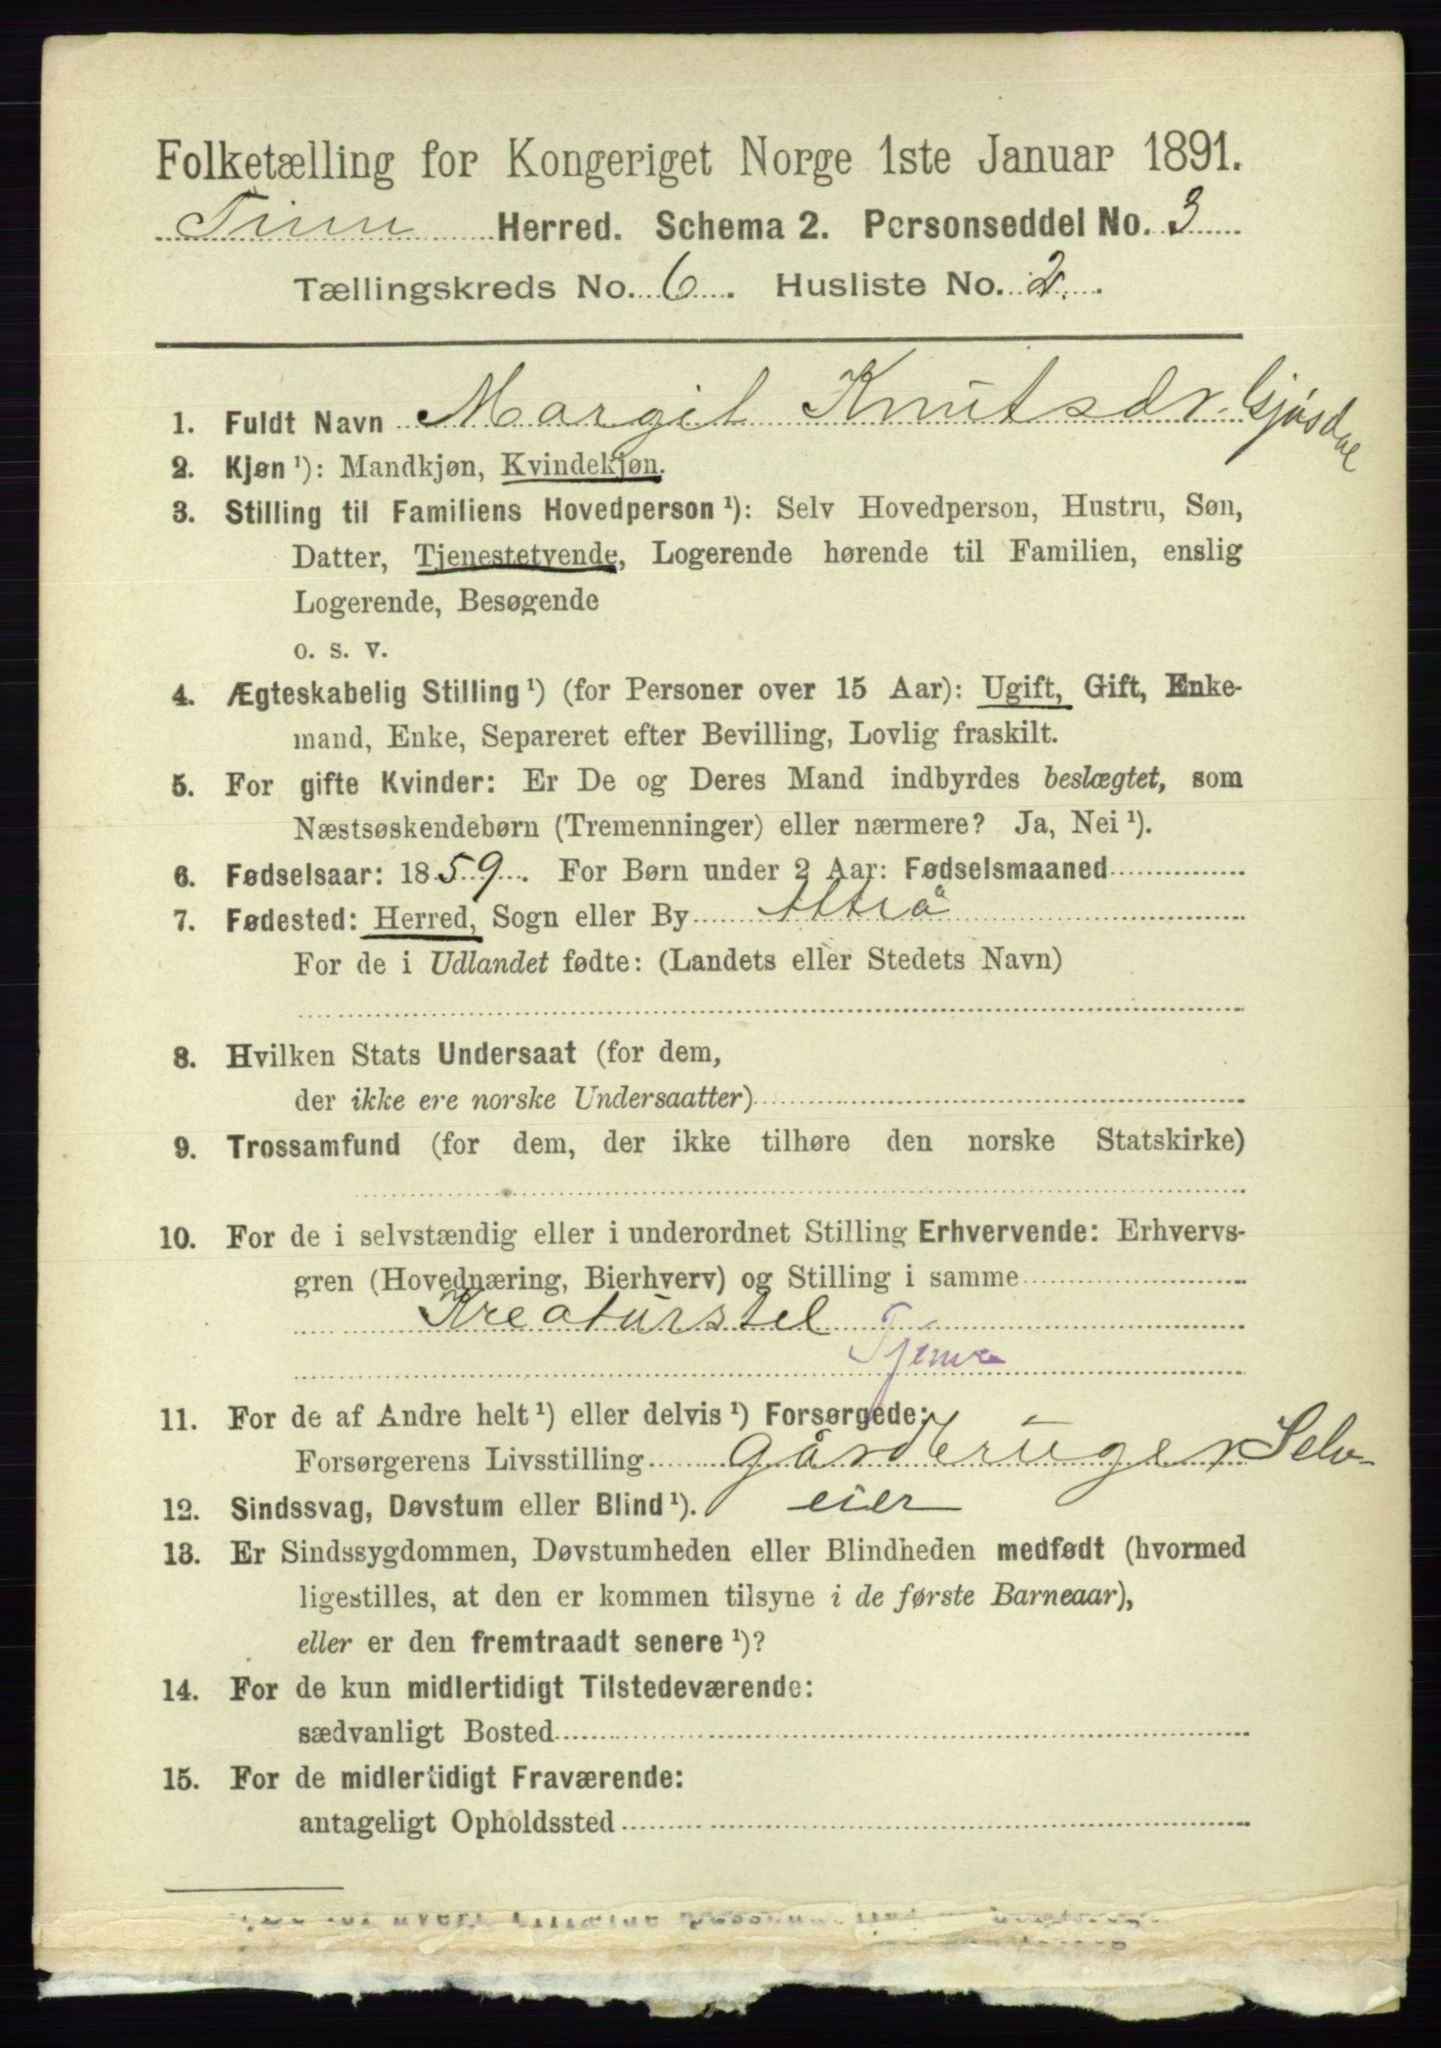 Folketælling for Kongeriget Norge 1ste Januar 1891.
Tinn Herred. Schema 2. Personseddel No. 3
Tællingskreds No. 6. Husliste No. 2.
1. Fuldt Navn Margit Knutsdr. Gjøsdal
2. Kjøn¹): Mandkjøn, Kvindekjøn.
3. Stilling til Familiens Hovedperson¹): Selv Hovedperson, Hustru, Søn,
Datter, Tjenestetyende, Logerende hørende til Familien, enslig
Logerende, Besøgende
o. s. v.
4. Ægteskabelig Stilling¹) (for Personer over 15 Aar): Ugift, Gift, Enke-
mand, Enke, Separeret efter Bevilling, Lovlig fraskilt.
5. For gifte Kvinder: Er De og Deres Mand indbyrdes beslægtet, som
Næstsøskendebørn (Tremenninger) eller nærmere? Ja, Nei¹).
6. Fødselsaar: 1859. For Børn under 2 Aar: Fødselsmaaned
7. Fødested: Herred, Sogn eller By Attrå
For de i Udlandet fødte: (Landets eller Stedets Navn)
8. Hvilken Stats Undersaat (for dem,
der ikke ere norske Undersaatter)
9. Trossamfund (for dem, der ikke tilhøre den norske Statskirke)
10. For de i selvstændig eller i underordnet Stilling Erhvervende: Erhvervs-
gren (Hovednæring, Bierhverv) og Stilling i samme
Kreaturstel
Tjener
11. For de af Andre helt¹) eller delvis¹) Forsørgede:
Forsørgerens Livsstilling Gårdbruger Selv-
eier
12. Sindssvag, Døvstum eller Blind¹).
13. Er Sindssygdommen, Døvstumheden eller Blindheden medfødt (hvormed
ligestilles, at den er kommen tilsyne i de første Barneaar),
eller er den fremtraadt senere¹)?
14. For de kun midlertidigt Tilstedeværende:
sædvanligt Bosted
15. For de midlertidigt Fraværende:
antageligt Opholdssted